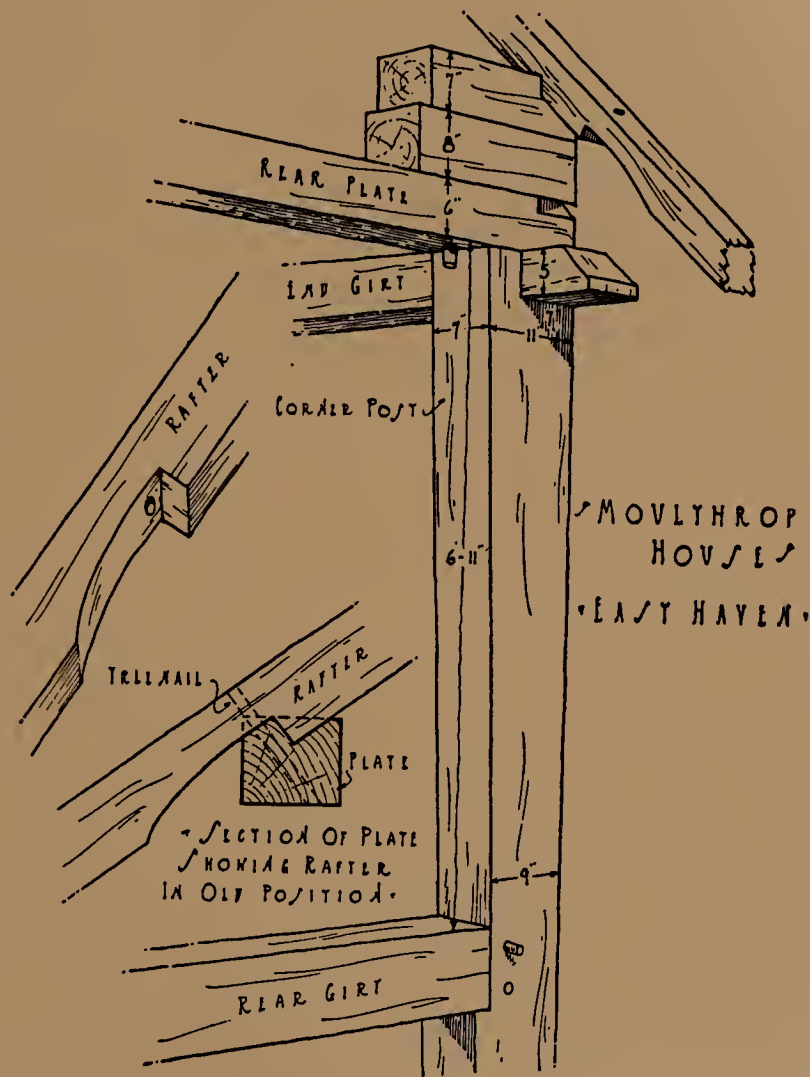 7"
8"
REAR PLATE
6"
END GIRT
5"
7"
11"
RAFTER
CORNER POST
6'-11"
MOULTHROP
HOUSES
EAST HAVEN
TREENAIL
RAFTER
PLATE
SECTION OF PLATE
SHOWING RAFTER
IN OLD POSITION
9"
REAR GIRT